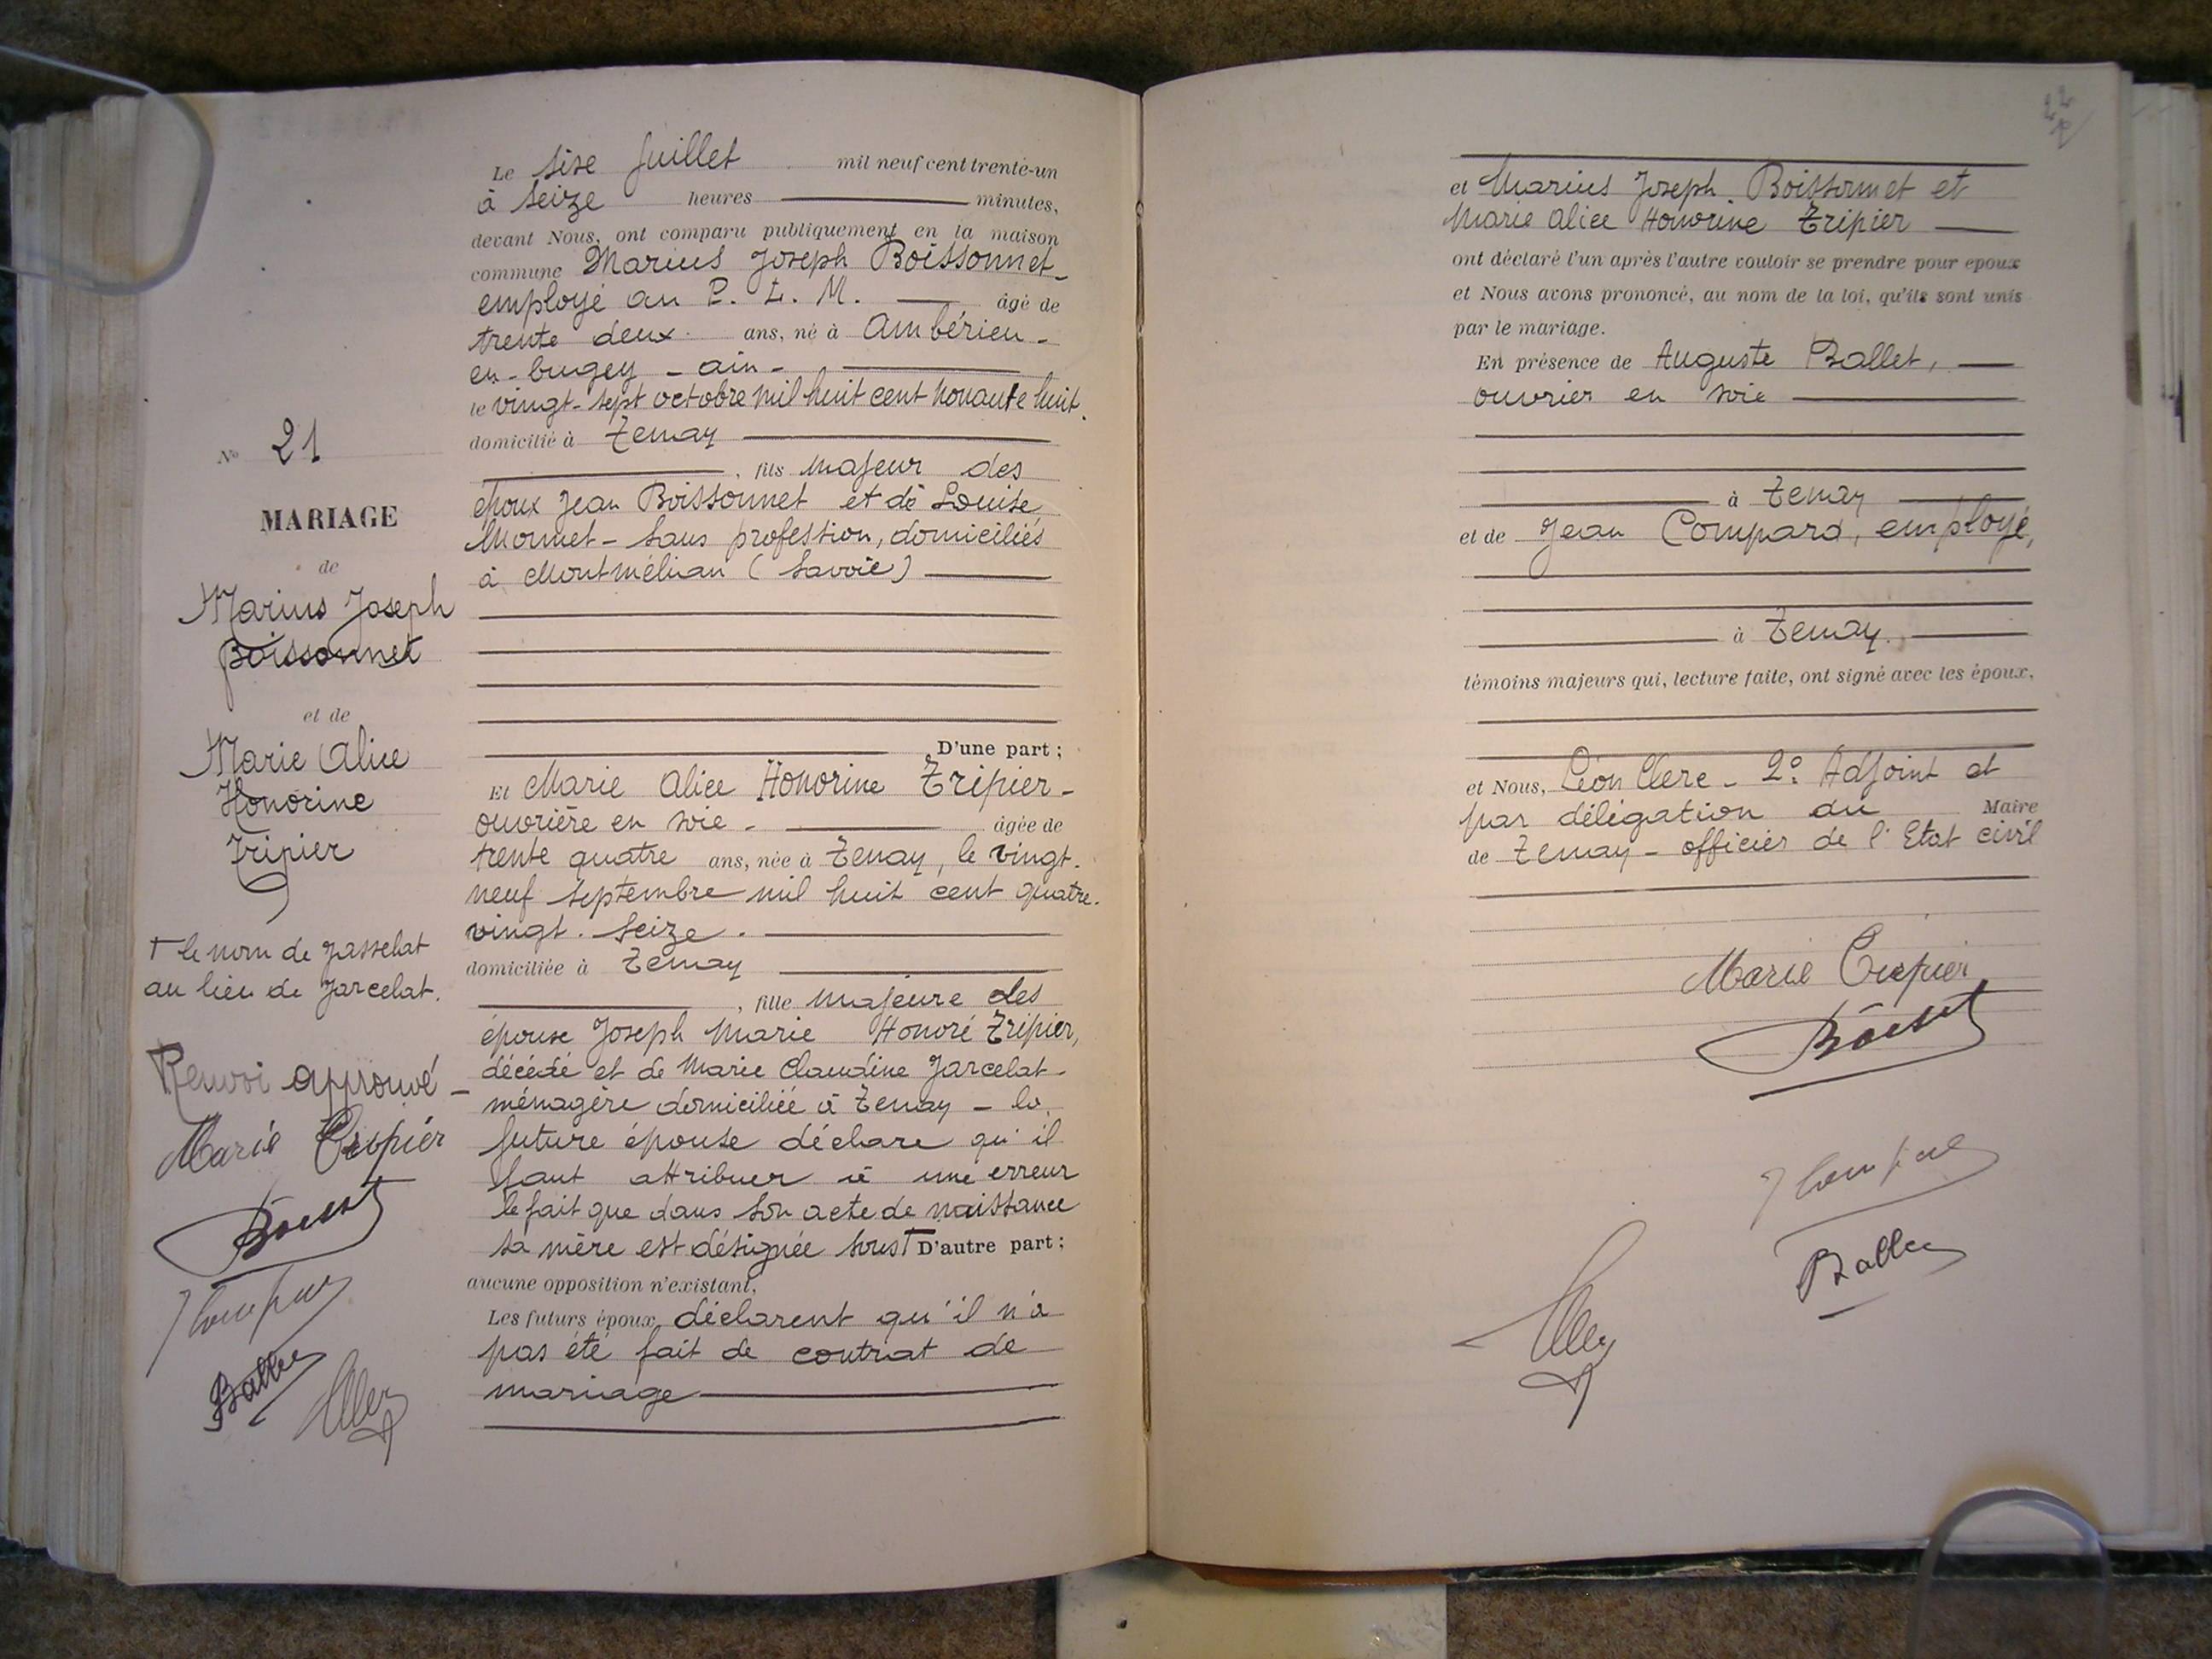 N° 21
MARIAGE
de
Marius Joseph
Boissonnet
et de
Marie Alice
Honorine
Tripier
† le nom de Jasselat
au lieu de Jarcelat.
Renvoi approuvé -
Marie Tripier
Ballet
Le sise Juillet mil neuf cent trente-un
à seize heures minutes,
devant Nous, ont comparu publiquement en la maison
commune Marius Joseph Boissonnet -
employé au P. L. M. âgé de
trente deux ans, né à Ambérieu -
en - bugey - ain -
le vingt-sept octobre mil huit cent nonante huit.
domicilié à Tenay
, fils majeur des
époux Jean Boissonnet et de Louise
Monnet - sans profession, domiciliés
à Montmélian (Savoie)
D'une part ;
Et Marie Alice Honorine Tripier -
ouvrière en soie - âgée de
trente quatre ans, née à Tenay, le vingt-
neuf septembre mil huit cent quatre-
vingt-seize.
domiciliée à Tenay
, fille majeure des
épouse Joseph Marie Honoré Tripier,
décédé et de Marie Claudine Jarcelat -
ménagère domiciliée à Tenay - la
future épouse déclare qu'il
faut attribuer à une erreur
le fait que dans son acte de naissance
sa mère est désignée sous † D'autre part ;
aucune opposition n'existant,
Les futurs époux déclarent qu'il n'a
pas été fait de contrat de
mariage
et Marius Joseph Boissonnet et
Marie Alice Honorine Tripier
ont déclaré l'un après l'autre vouloir se prendre pour epoux
et Nous avons prononcé, au nom de la loi, qu'ils sont unis
par le mariage.
En présence de Auguste Ballet,
ouvrier en soie
à Tenay
et de Jean Compard, employé,
à Tenay.
témoins majeurs qui, lecture faite, ont signé avec les époux.
et Nous, Léon Clerc - 2° Adjoint et
par délégation du Maire
de Tenay - officier de l'Etat civil
Marie Tripier
Ballet